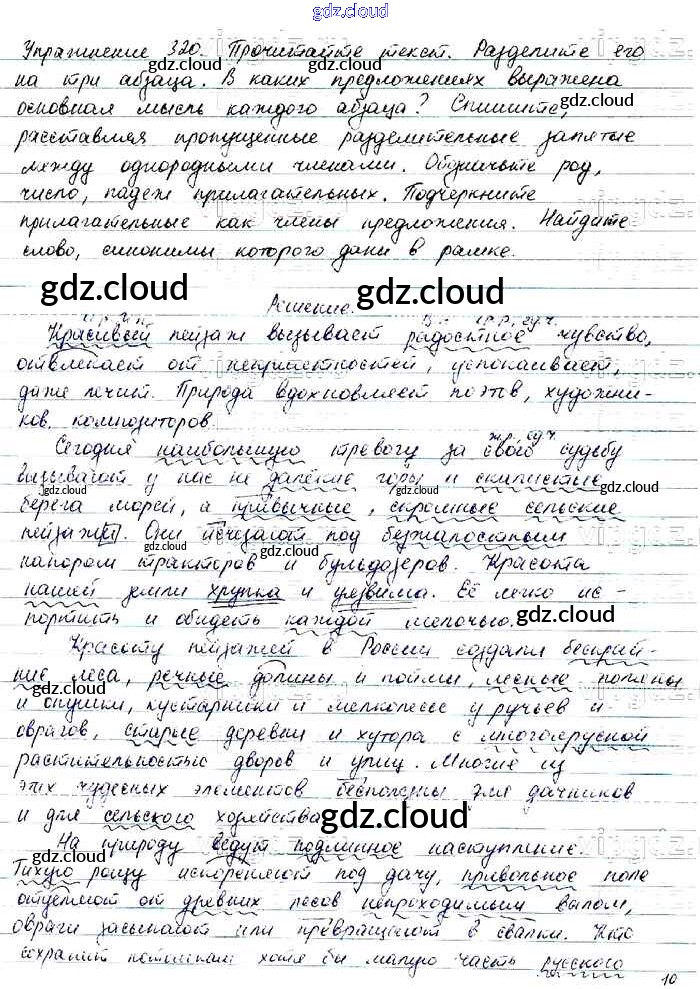 gdz.cloud
Упражнение 320. Прочитайте текст. Разделите его
на три абзаца. В каких предложениях выражена
основная мысль каждого абзаца? Спишите,
расставляя пропущенные разделительные запятые
между однородными членами. Определите род,
число, падеж прилагательных. Подчеркните
прилагательные как члены предложения. Найдите
слово, синонимы которого даны в рамке.
Решение.
Красивый пейзаж вызывает радостное чувство,
отвлекает от неприятностей, успокаивает,
даже лечит. Природа вдохновляет поэтов, художни-
ков, композиторов.
Сегодня наибольшую тревогу за свою судьбу
вызывают у нас не далёкие горы и скалистые
берега морей, а привычные, скромные сельские
пейзажи. Они исчезают под безжалостным
напором тракторов и бульдозеров. Красота
нашей земли хрупка и уязвима. Её легко ис-
портить и обидеть каждой мелочью.
Красоту пейзажей в России создали бескрай-
ние леса, речные долины и поймы, лесные поляны
и опушки, кустарники и мелколесье у ручьев и
оврагов, старые деревни и хутора с многоярусной
растительностью дворов и улиц. Многие из
этих чудесных элементов бесполезны для дачников
и для сельского хозяйства.
На природу ведут подлинное наступление.
Тихую рощу искореняют под дачу, привольное поле
отделяют от древних лесов непроходимым валом,
овраги засыпают или превращают в свалки. Кто
сохранит потомкам хотя бы малую часть русского
10